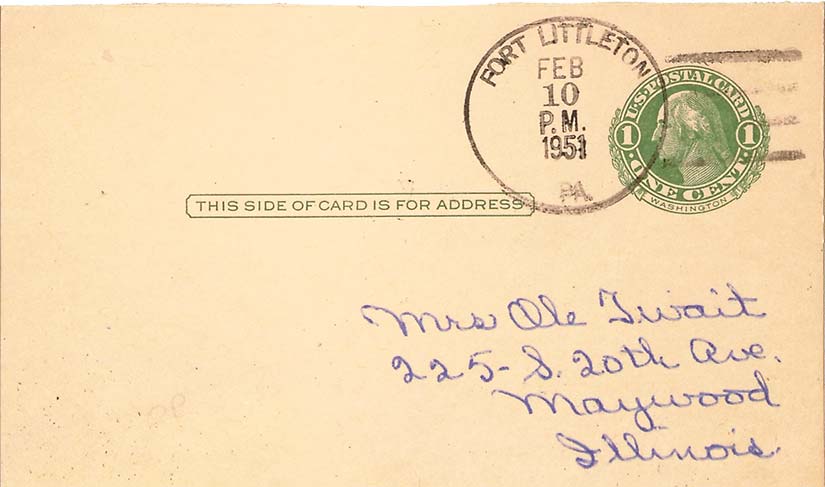 FORT LITTLETON
FEB
10
P.M.
1951
PA.
U.S. POSTAL CARD
1 1
ONE CENT
WASHINGTON
THIS SIDE OF CARD IS FOR ADDRESS
Mrs Ole Twait
225- S. 20th Ave.
Maywood
Illinois.